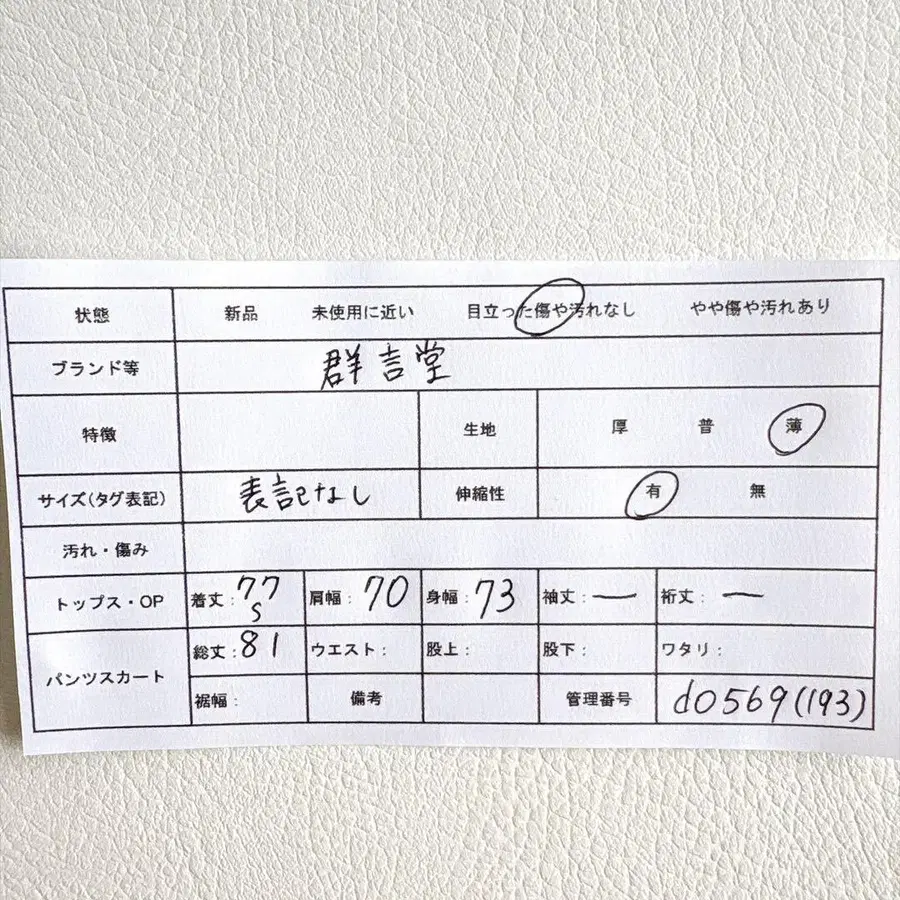 状態 新品 未使用に近い 目立った傷や汚れなし やや傷や汚れあり
ブランド等 群言堂
特徴 生地 厚 普 薄
サイズ(タグ表記) 表記なし 伸縮性 有 無
汚れ・傷み
トップス・OP 着丈:77 肩幅:70 身幅:73 袖丈:ー 裄丈:ー
S
パンツスカート 総丈:81 ウエスト: 股上: 股下: ワタリ:
裾幅: 備考 管理番号 d0569(193)